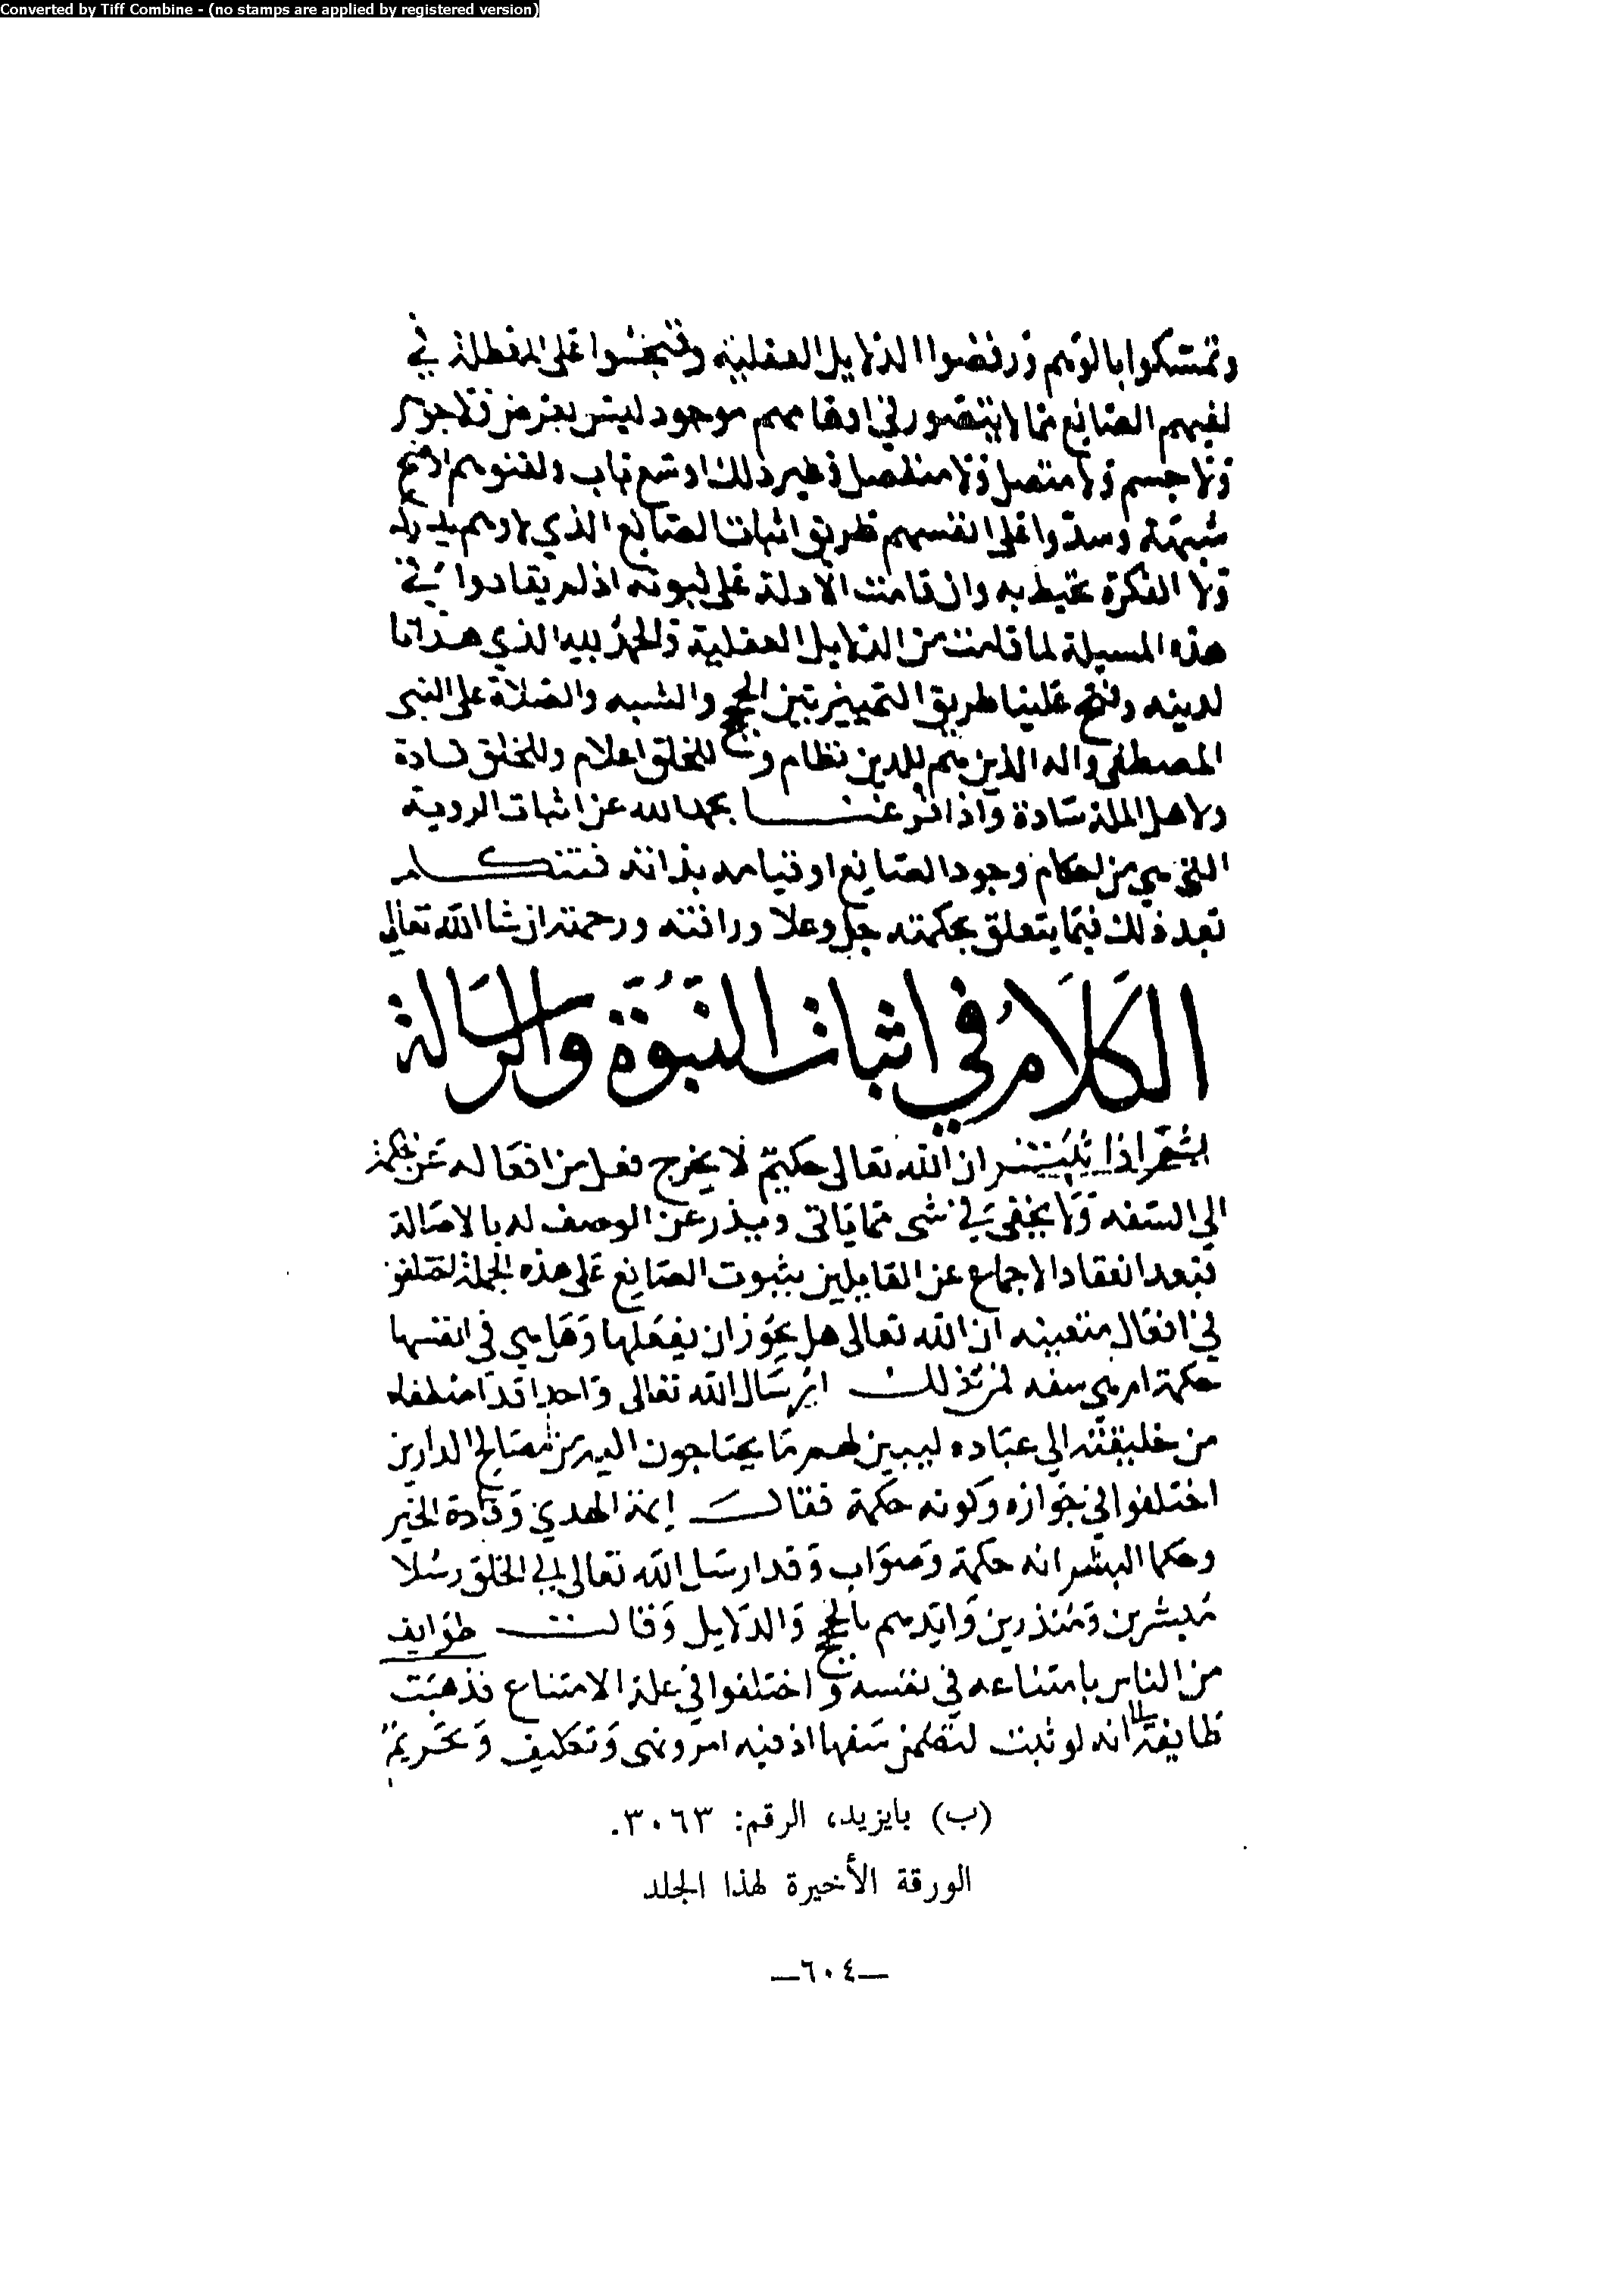 Converted by Tiff Combine - (no stamps are applied by registered version)
وتمسكوا بالوهم ورفضوا الدلايل العقلية وفتحوا على المعطلة في
نفيهم الصانع مما لا يتصور في اوهامهم موجود ليس بعرض ولا جوهر
ولا جسم ولا متصل ولا منفصل وغير ذلك اوسع باب ولقنوهم اوضح
شبهة وسدوا على انفسهم طريق اثبات الصانع الذي لا وهم يدركه
ولا الفكرة تحيط به وان قامت الادلة على ثبوته اذ لم ينقادوا في
هذه المسيلة لما قامت من الدلايل العقلية والحمد لله الذي هدانا
لدينه وفتح علينا طريق التمييز بين الحجج والشبه والصلاة على النبي
المصطفى واله الذين هم للدين نظام وللخلق اعلام وللخلق قادة
ولاهل الملة سادة واذا فرغنا بحمد الله عن اثبات الروية
التي هي من احكام وجود الصانع او قيامه بذاته فنتكلم
بعد ذلك فيما يتعلق بحكمته جل وعلا ورافته ورحمته ان شا الله تعالى
الكلام في اثبات النبوة والرسالة
ثم اذا ثبت ان الله تعالى حكيم لا يخرج فعل من افعاله عن الحكمة
الى السفه ولا يخفى في شى مما ياتى ويذر عن الوصف له بالاصالة
فبعد انعقاد الاجماع عن القايلين بثبوت الصانع على هذه الجملة اختلفوا
في افعال متعينه ان الله تعالى هل يجوز ان يفعلها وهل هي في انفسها
حكمة ام هي سفه فمن ذلك ارسال الله تعالى واحدا قد اصطفاه
من خليقته الى عباده ليبين لهم ما يحتاجون اليه من مصالح الدارين
اختلفوا في جوازه وكونه حكمة فقالت ايمة الهدي وقادة الخير
وحكما البشر انه حكمة وصواب وقد ارسل الله تعالى الى الخلق رسلا
مبشرين ومنذرين وايدهم بالحجج والدلايل وقالت طوايف
من الناس بامتناعه في نفسه واختلفوا في علة الامتناع فذهبت
طايفة الى انه لو ثبت لتضمن سفها اذ فيه امر ونهى وتكليف وتحريم
(ب) بايزيد، الرقم: ٣٠٦٣.
الورقة الأخيرة لهذا الجلد
—٦٠٤—